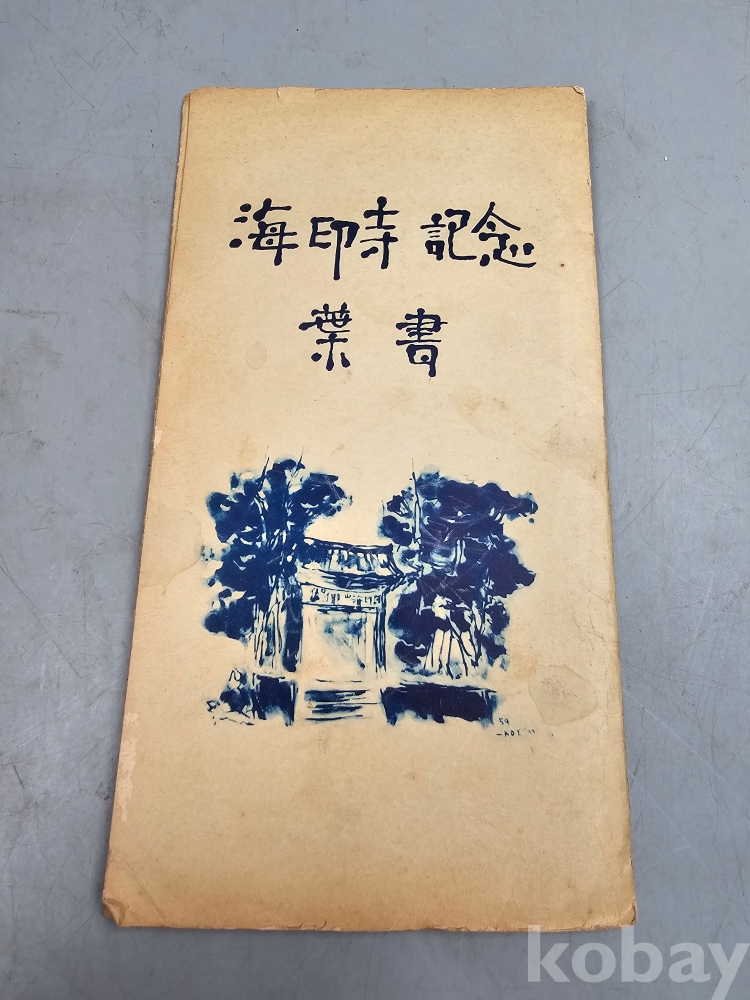 海印寺 記念
葉書
59
kobay